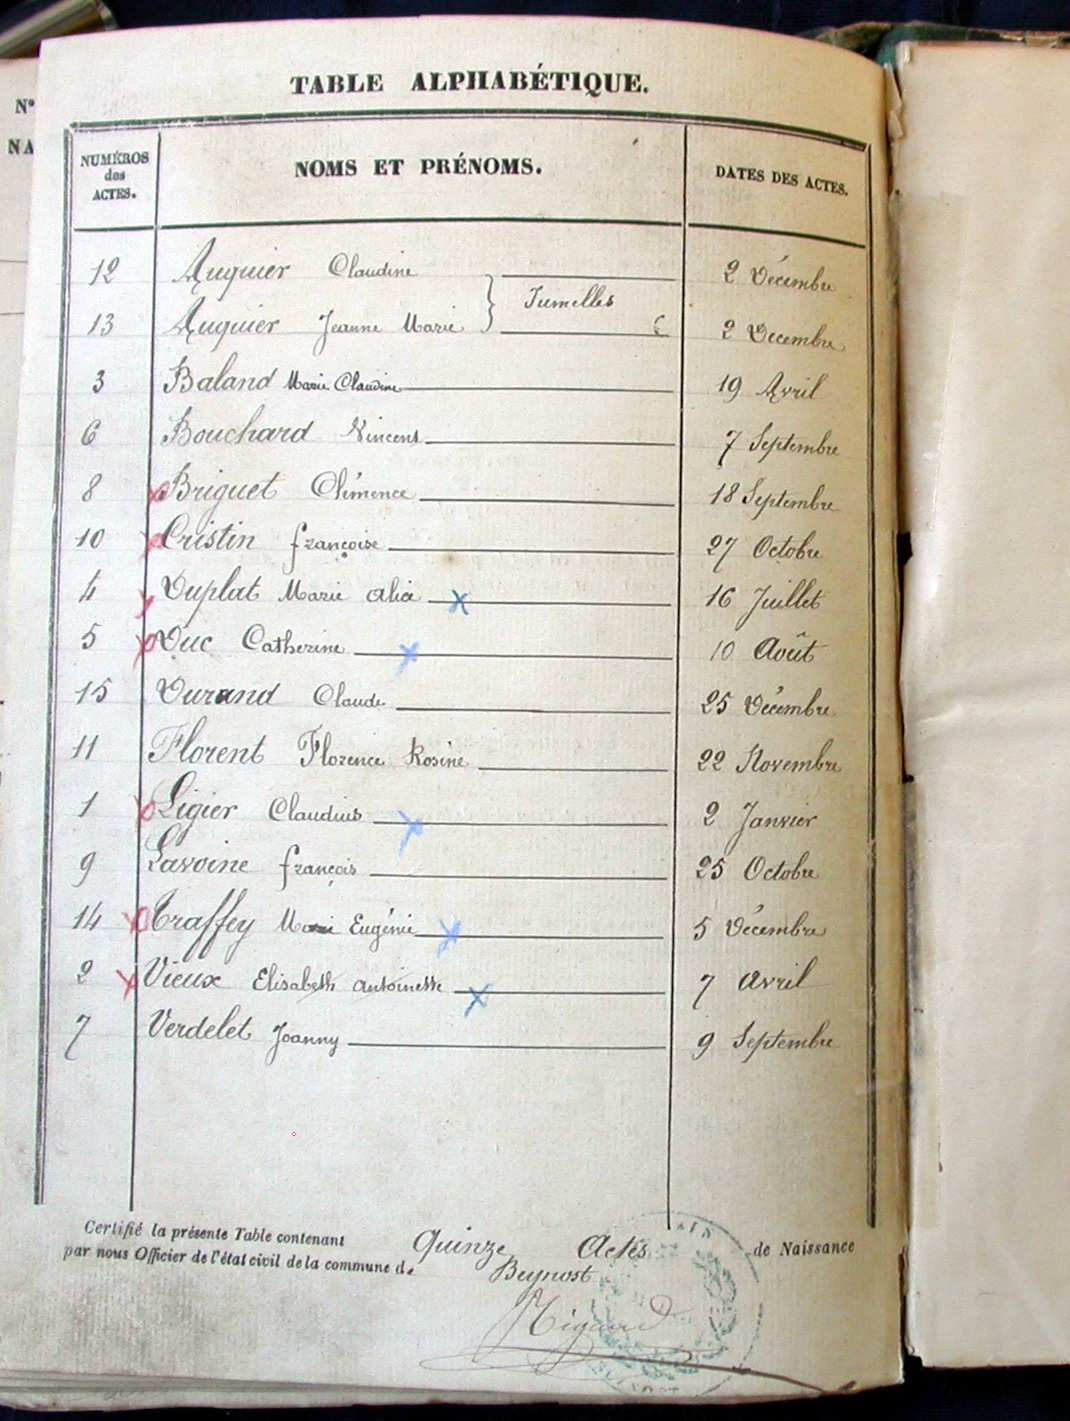 N°
NA
TABLE ALPHABÉTIQUE.
NUMÉROS
des
ACTES.
NOMS ET PRÉNOMS.
DATES DES ACTES.
12 Auguier Claudine 2 Décembre
Jumelles
13 Auguier Jeanne Marie 2 Décembre
3 Baland Marie Claudine 19 Avril
6 Bouchard Vincent 7 Septembre
8 Briguet Clémence 18 Septembre
10 Cristin françoise 27 Octobre
4 Duplat Marie Alice 16 Juillet
5 Duc Catherine 10 Août
15 Durand Claude 25 Décembre
11 Florent Florence Rosine 22 Novembre
1 Ligier Claudius 2 Janvier
9 Lavoine françois 25 Octobre
14 Traffey Marie Eugénie 5 Décembre
2 Vieux Elisabeth Antoinette 7 Avril
7 Verdelet Joanny 9 Septembre
Certifié la présente Table contenant Quinze Actes de Naissance
par nous Officier de l'état civil de la commune de Beynost